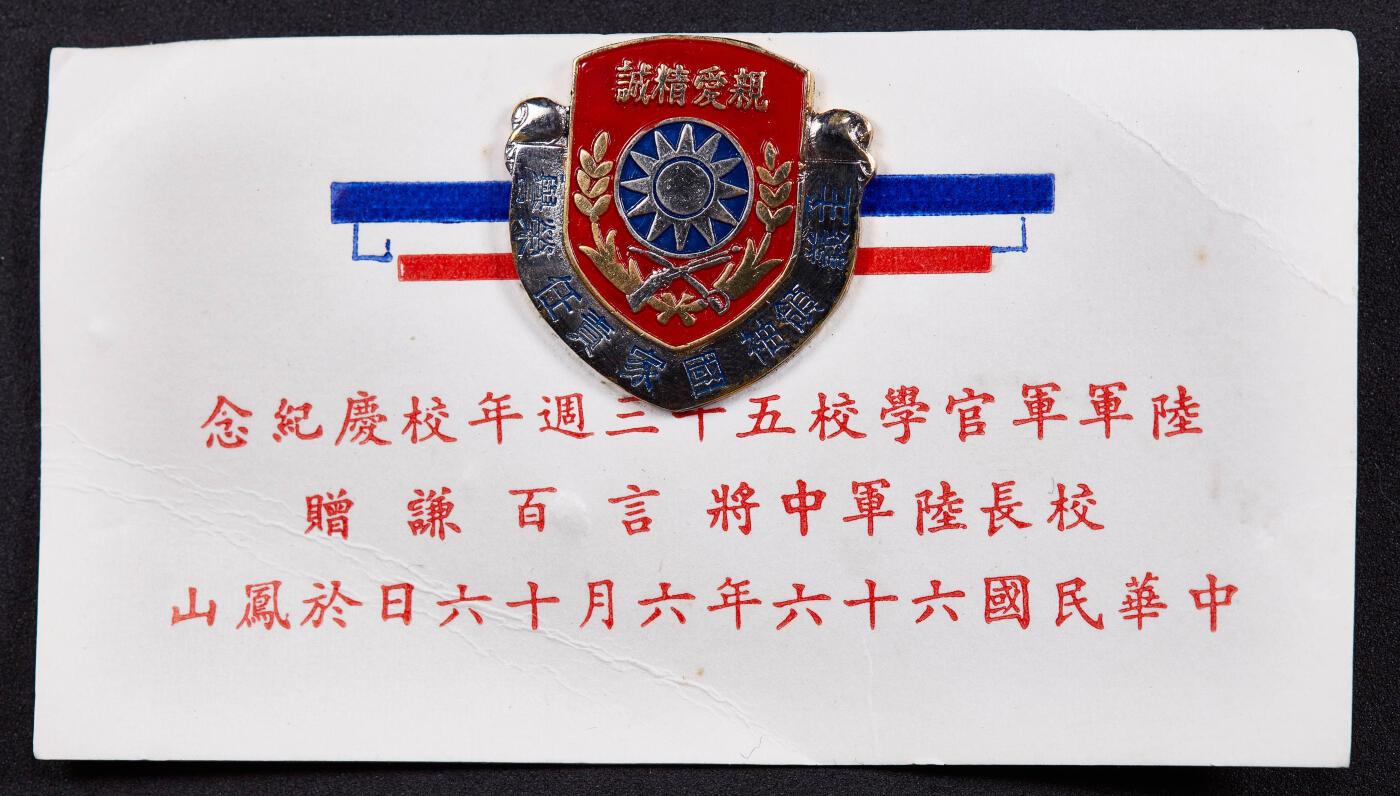 親愛精誠
主義 領袖 國家 責任 榮譽
陸軍軍官學校五十三週年校慶紀念
校長陸軍中將言百謙贈
中華民國六十六年六月十六日於鳳山